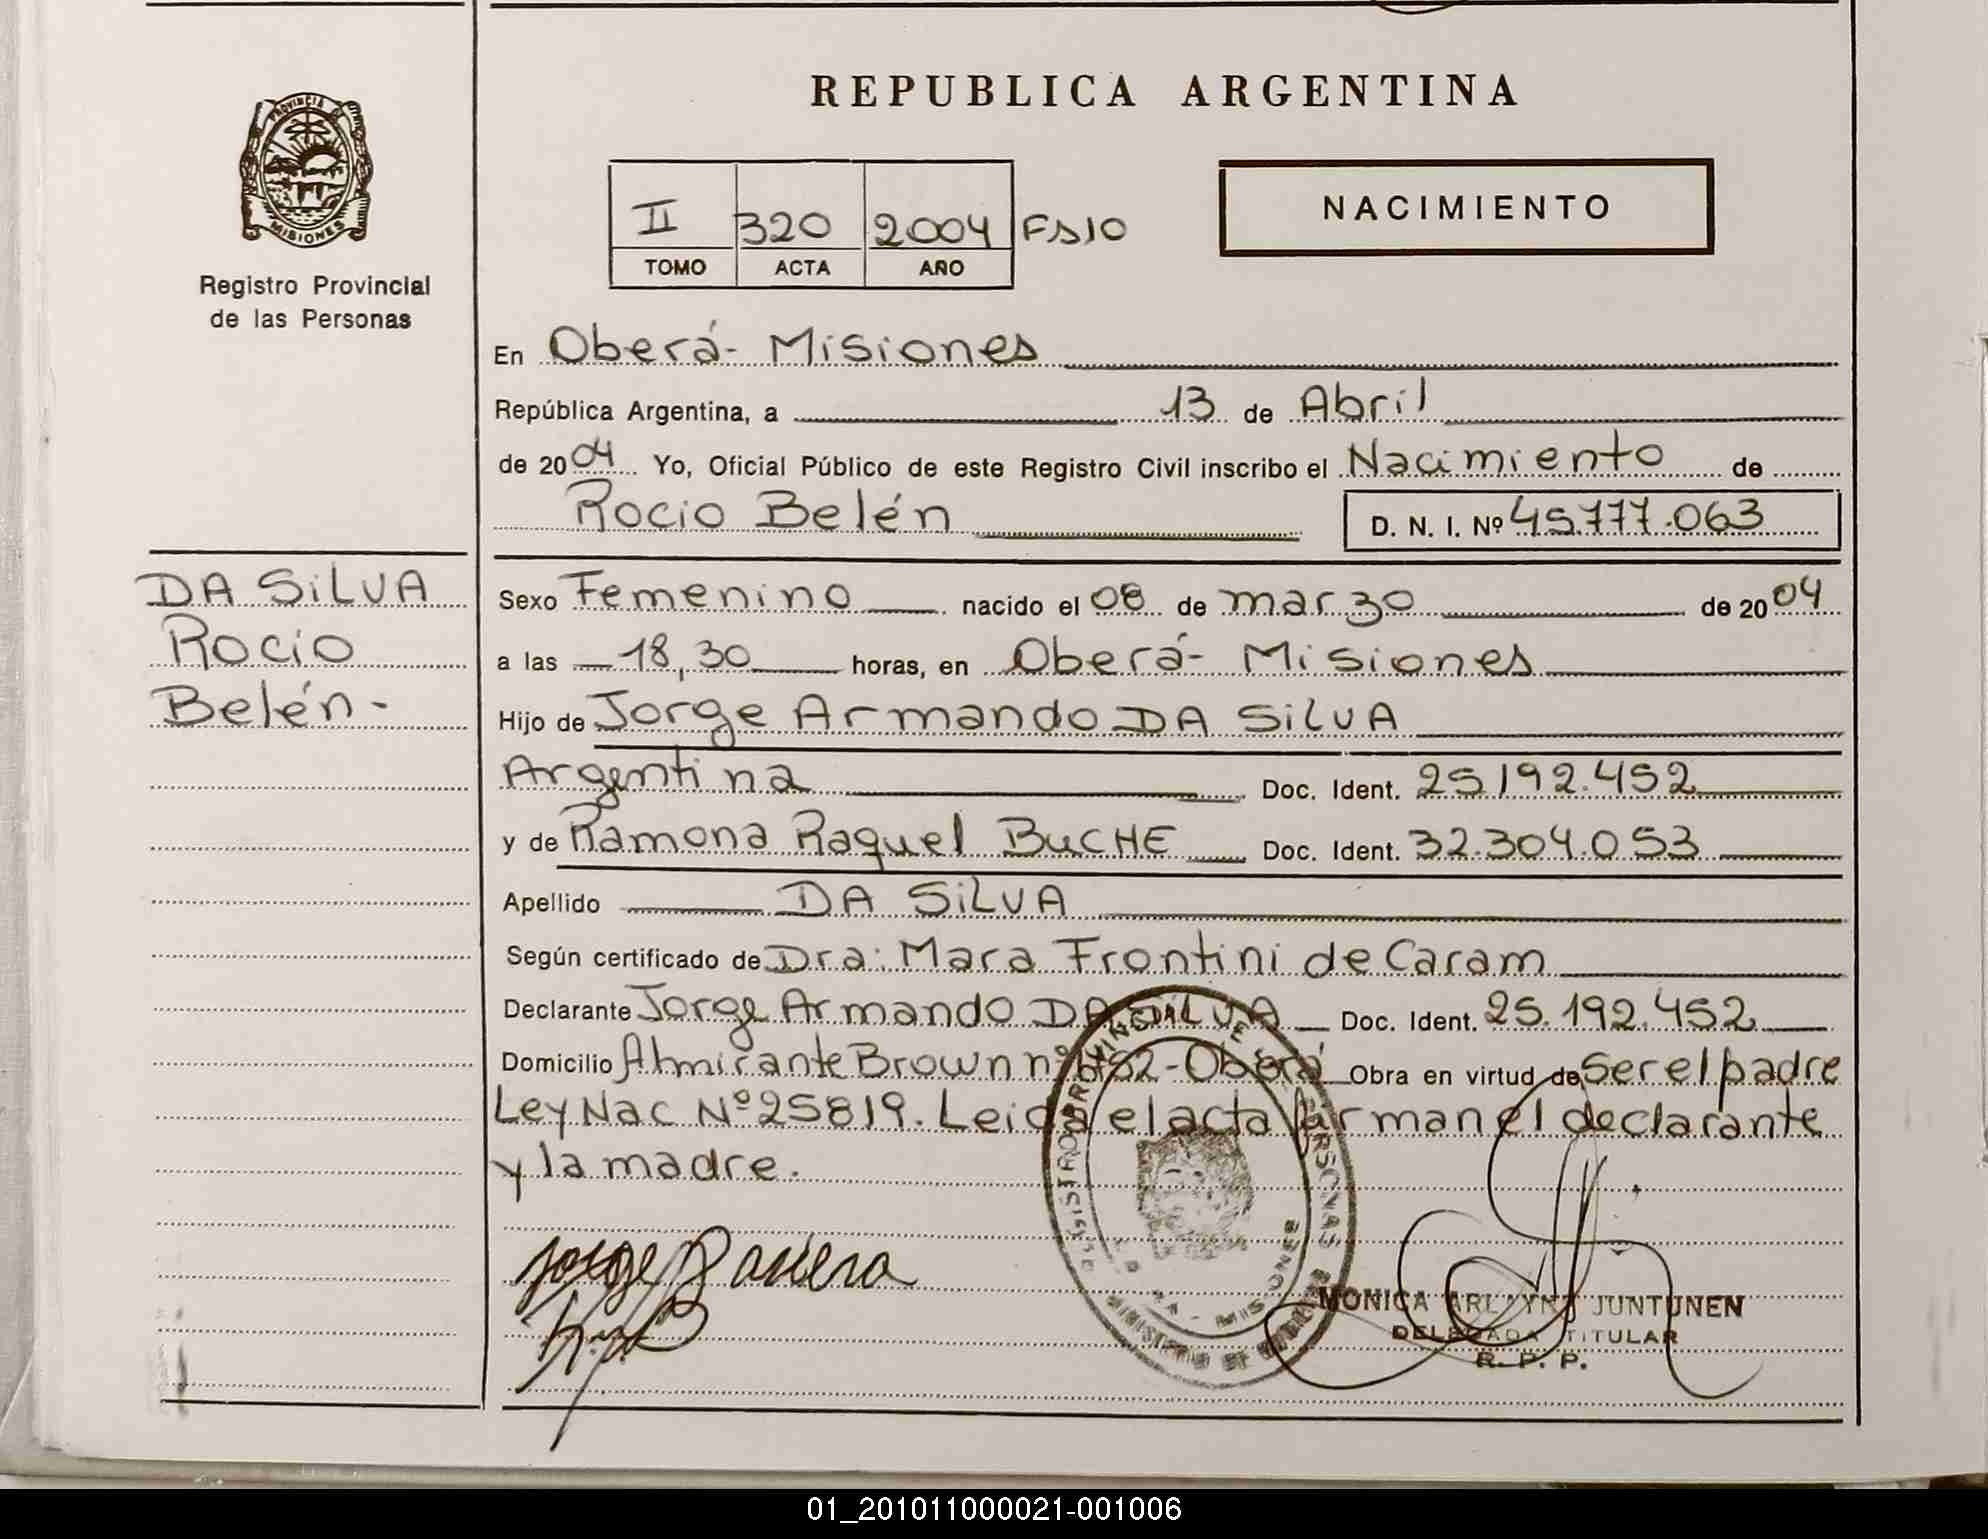 REPUBLICA ARGENTINA
PROVINCIA
MISIONES
Registro Provincial
de las Personas
II 320 2004 FS10
TOMO ACTA AÑO
NACIMIENTO
En Oberá- Misiones
República Argentina, a 13 de Abril
de 2004 Yo, Oficial Público de este Registro Civil inscribo el Nacimiento de
Rocio Belén D. N. I. Nº 45.777.063
DA SiLVA
Rocio
Belén-
Sexo Femenino nacido el 08 de marzo de 2004
a las 18,30 horas, en Oberá- Misiones
Hijo de Jorge Armando DA SiLVA
Argentina Doc. Ident. 25.192.452
y de Ramona Raquel BuCHE Doc. Ident. 32.304.053
Apellido DA SiLVA
Según certificado de Dra: Mara Frontini de Caram
Declarante Jorge Armando DA SiLVA Doc. Ident. 25.192.452
Domicilio Almirante Brown nº - Oberá Obra en virtud de Ser el padre
Ley Nac Nº 25819. Leida el acta firman el declarante
y la madre.
Jorge
MONICA JUNTUNEN
DELEGADA TITULAR
R. P. P.
01_201011000021-001006